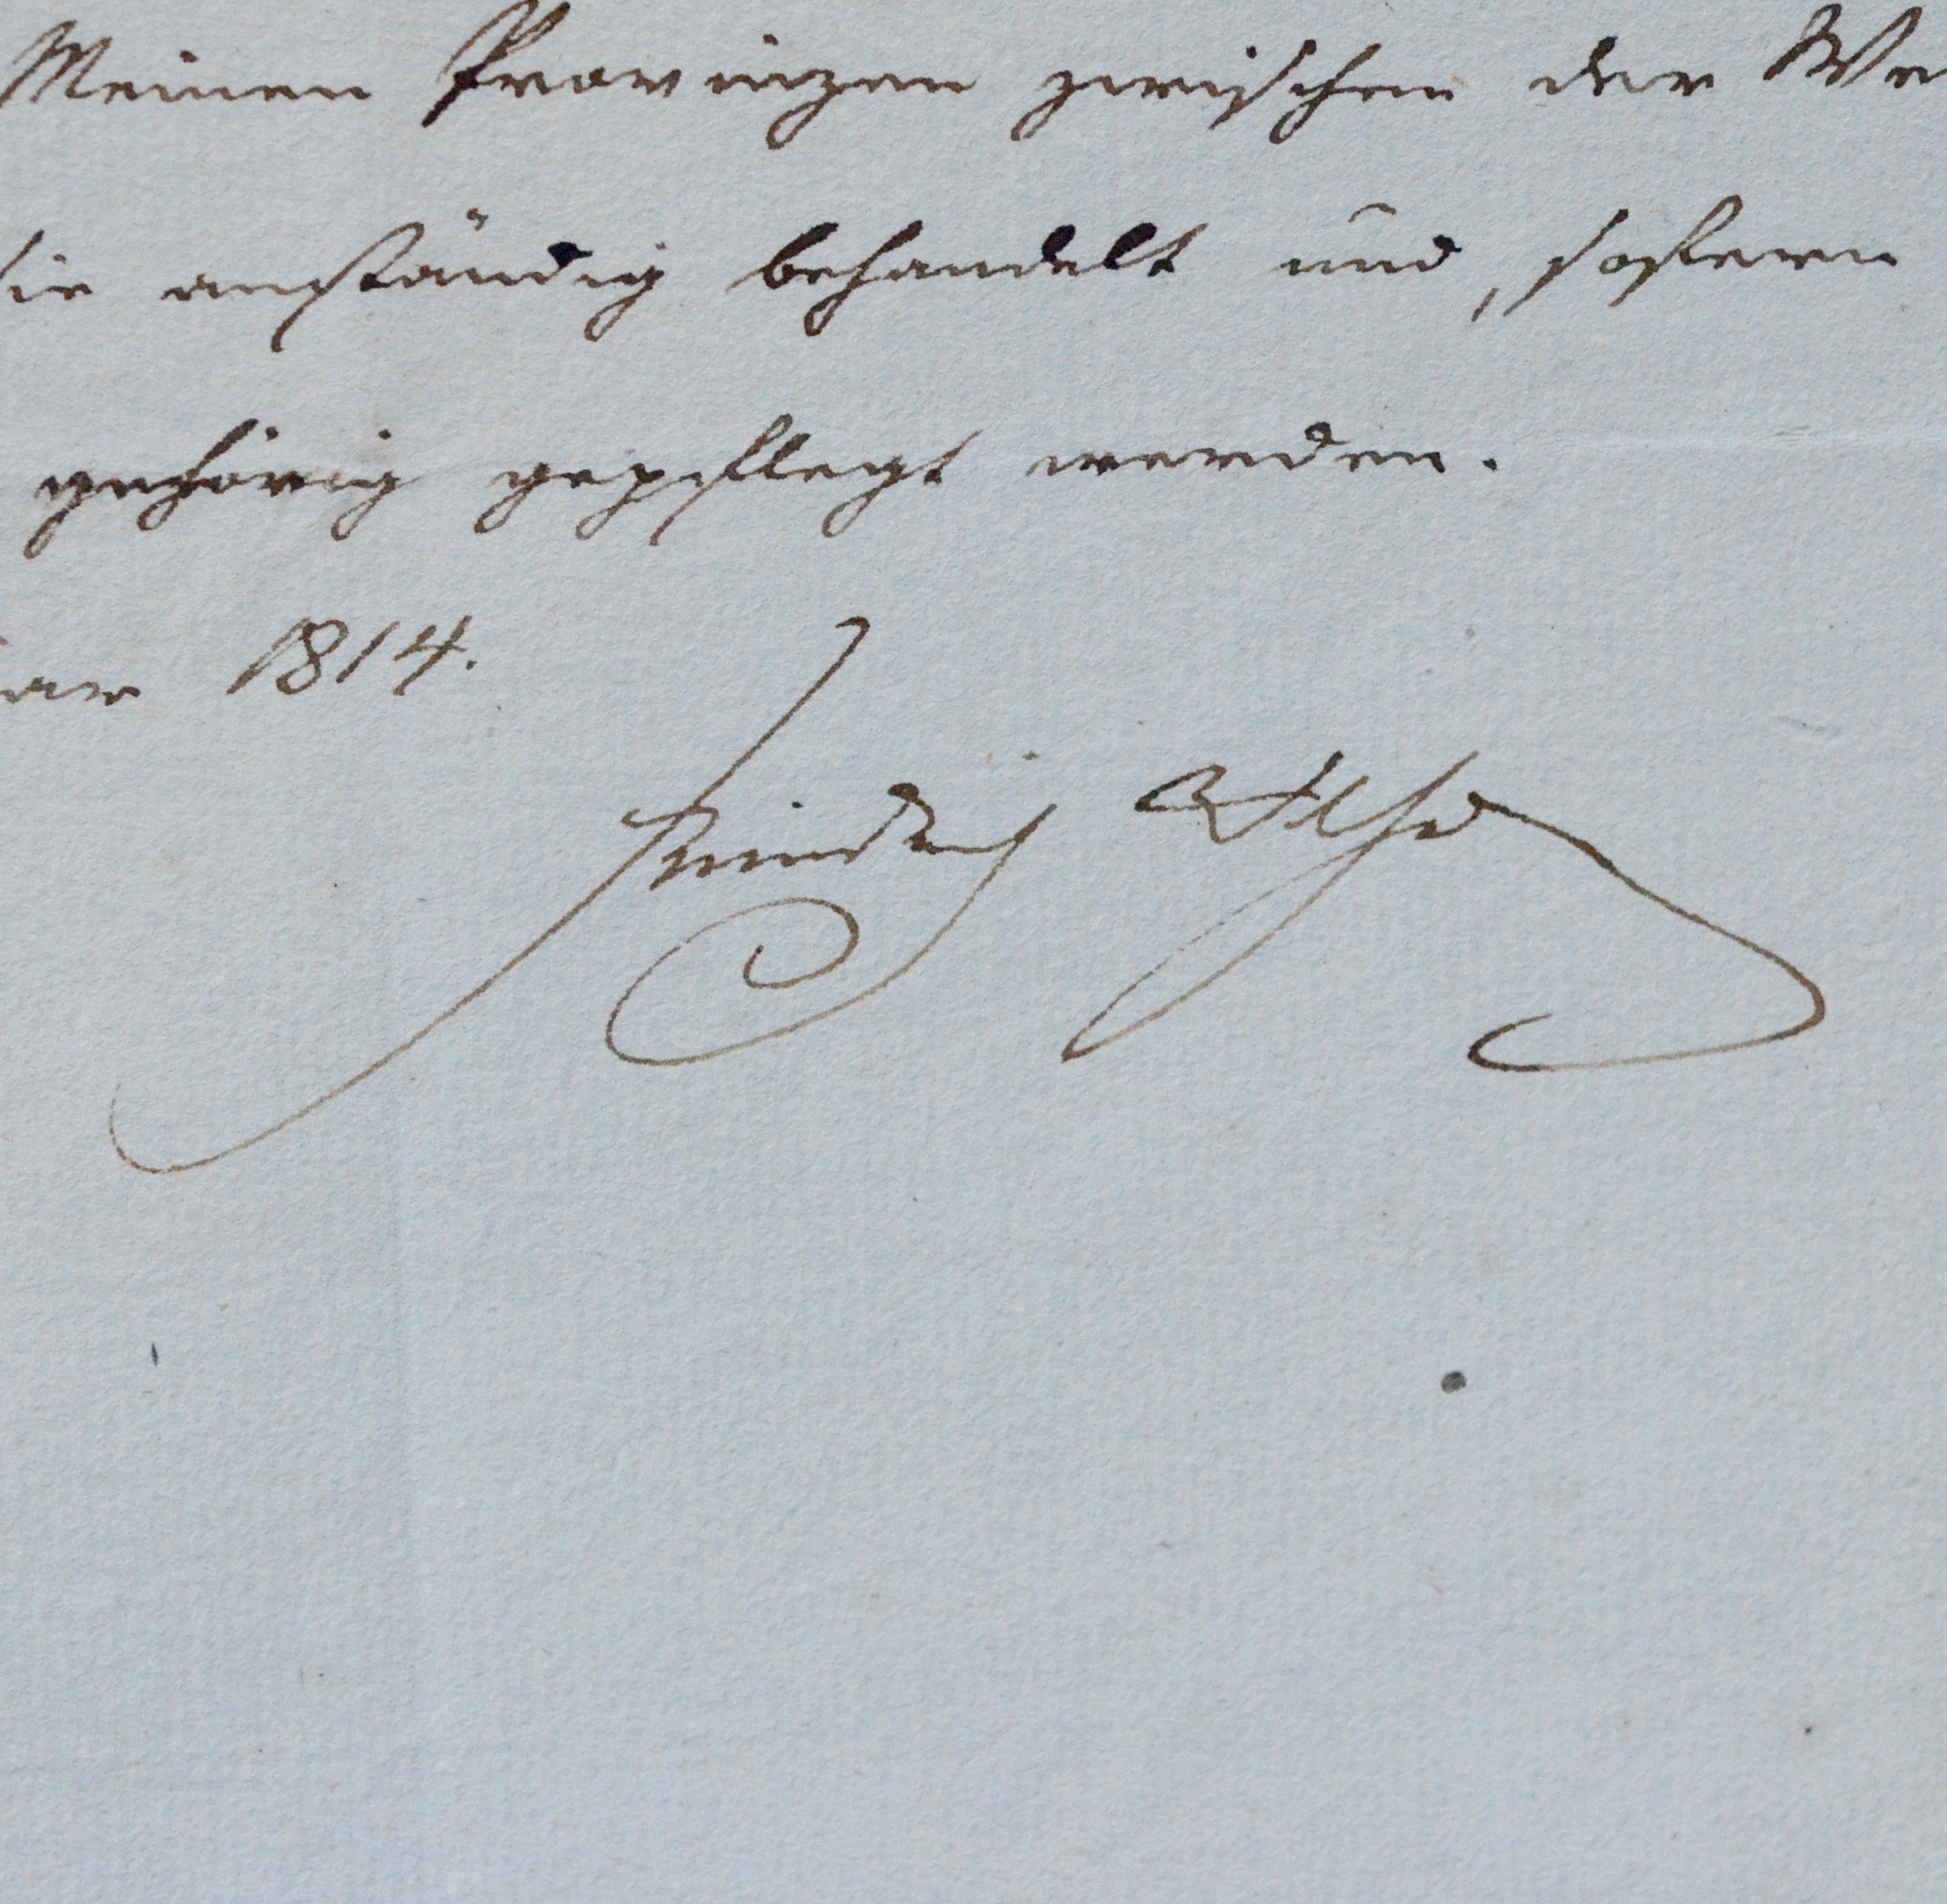 Meinen Provinzen zwischen der We
sie anständig behandelt und, sofern
gehörig gepflegt werden.
ar 1814.
Friedrich Wilhelm